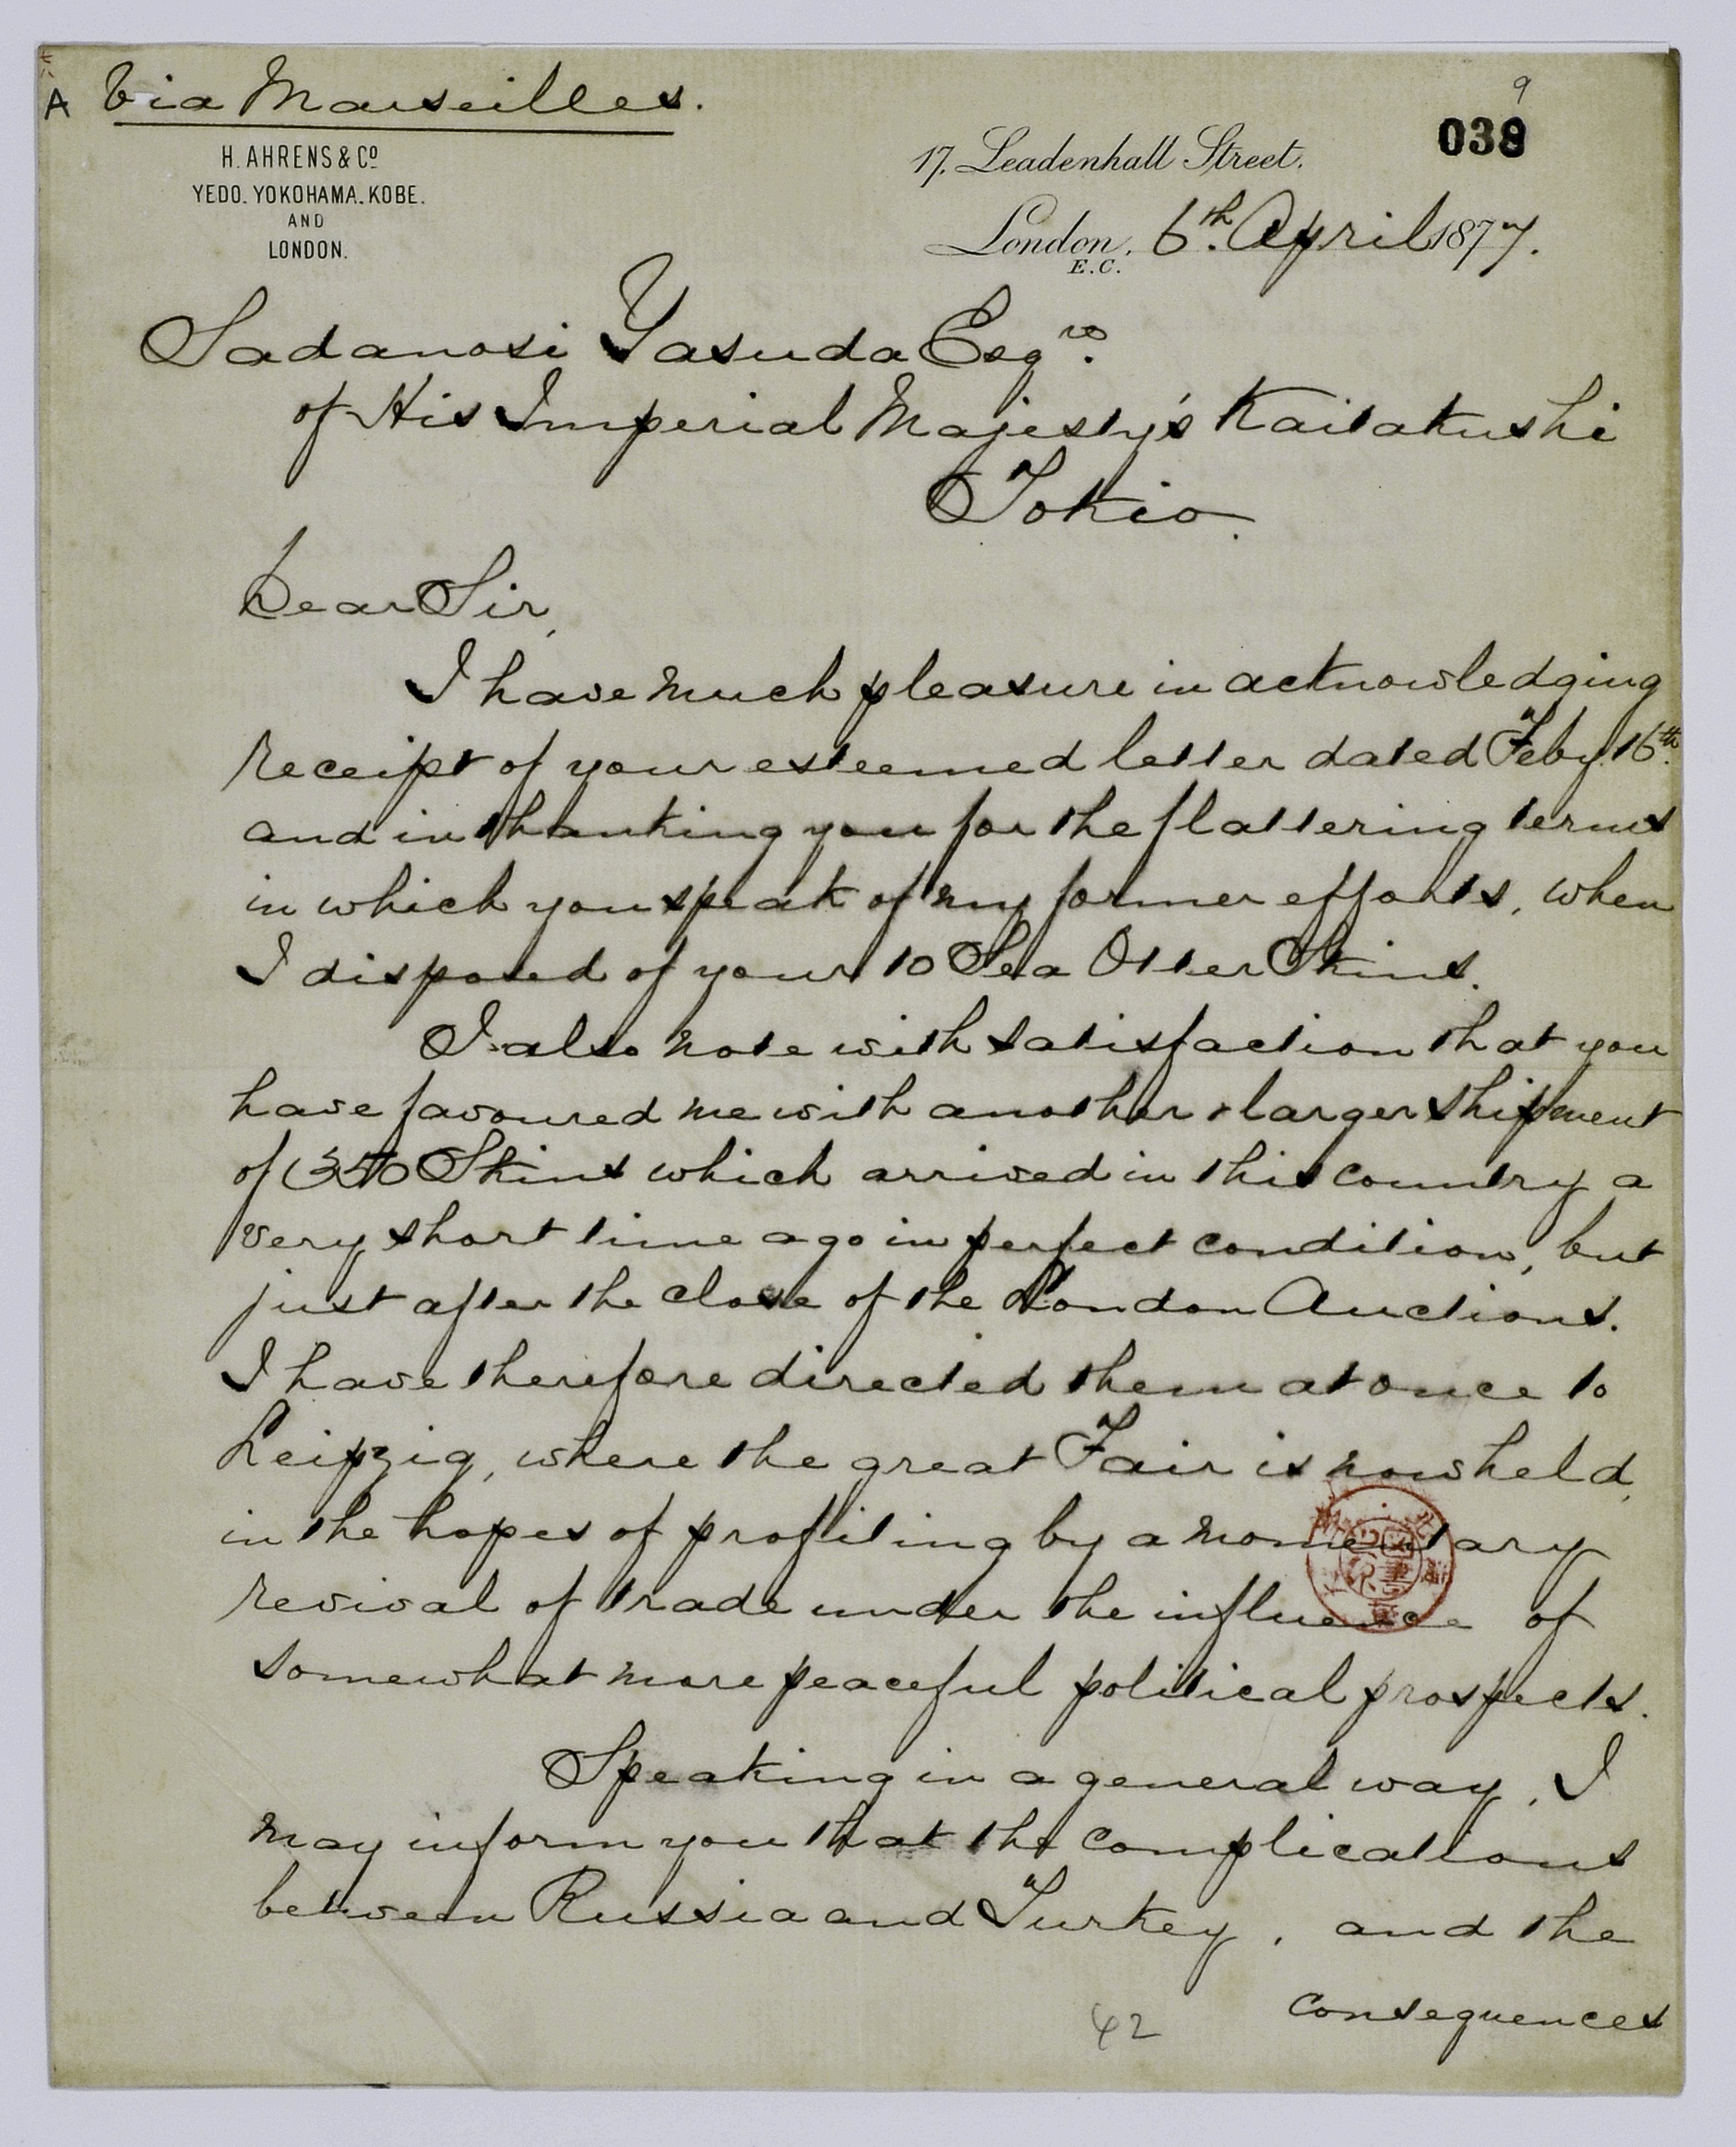 A Via Marseilles.
9
038
H. AHRENS & Co
YEDO. YOKOHAMA. KOBE.
AND
LONDON.
17, Leadenhall Street.
London, 6th. April 1877.
E.C.
Sadanosi Yasuda Esqre.
of His Imperial Majesty's Kaitakushi
Tokio.
Dear Sir,
I have much pleasure in acknowledging
receipt of your esteemed letter dated Feby. 16th.
and in thanking you for the flattering terms
in which you speak of my former efforts, when
I disposed of your 10 Sea Otter Skins.
I also note with satisfaction that you
have favoured me with another & larger shipment
of 350 Skins which arrived in this country a
very short time ago in perfect condition, but
just after the close of the London Auctions.
I have therefore directed them at once to
Leipzig, where the great Fair is now held,
in the hopes of profiting by a momentary
revival of trade under the influence of
somewhat more peaceful political prospects.
Speaking in a general way, I
may inform you that the complications
between Russia and Turkey, and the
consequences
42